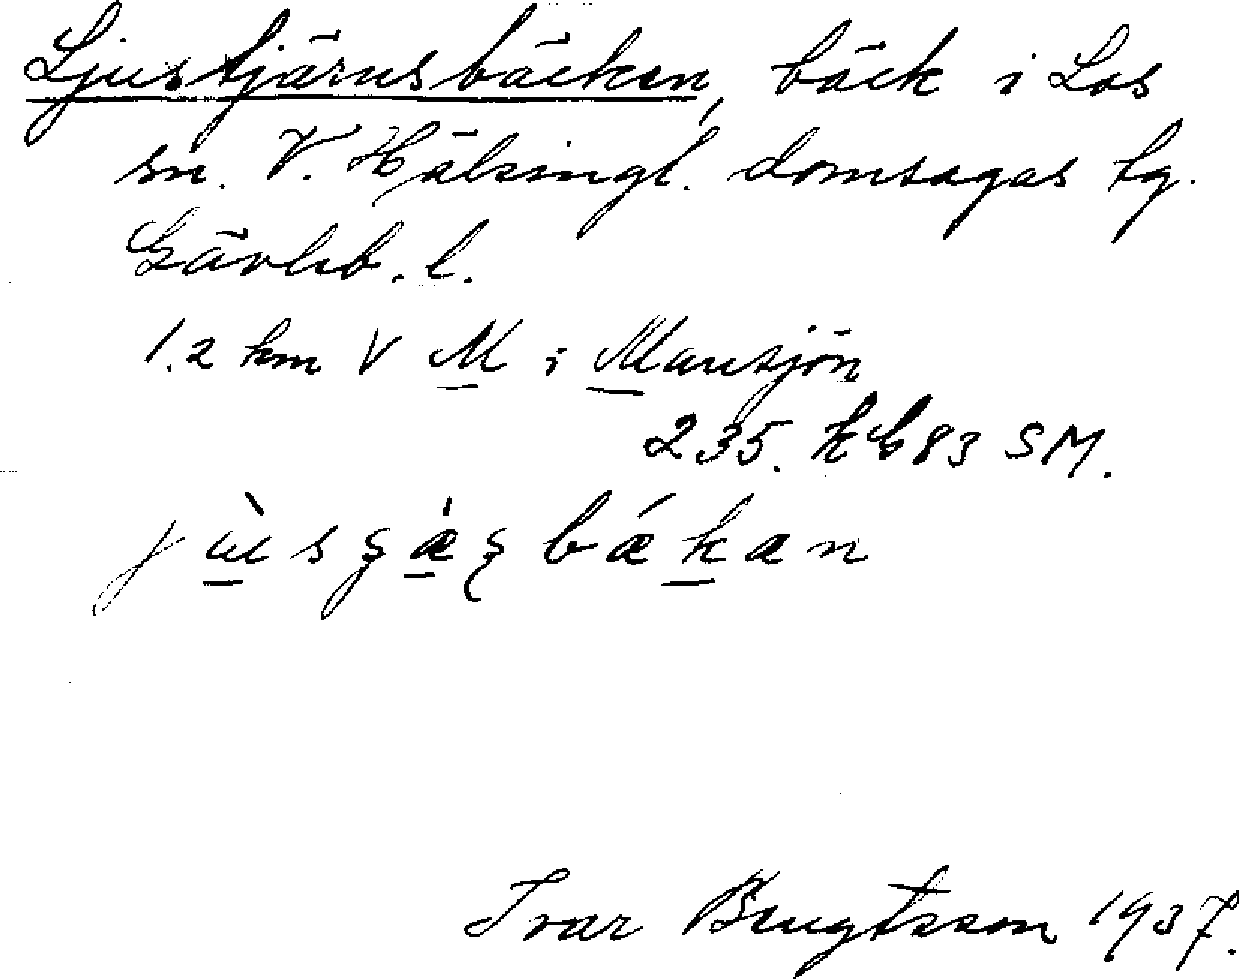 Ljustjärnsbäcken, bäck i Los
sn. V. Hälsingl. domsagas tg.
Gävleb. l.
1.2 km V M i Mansjön
235. kb 83 SM.
Ivar Bengtsson 1937.